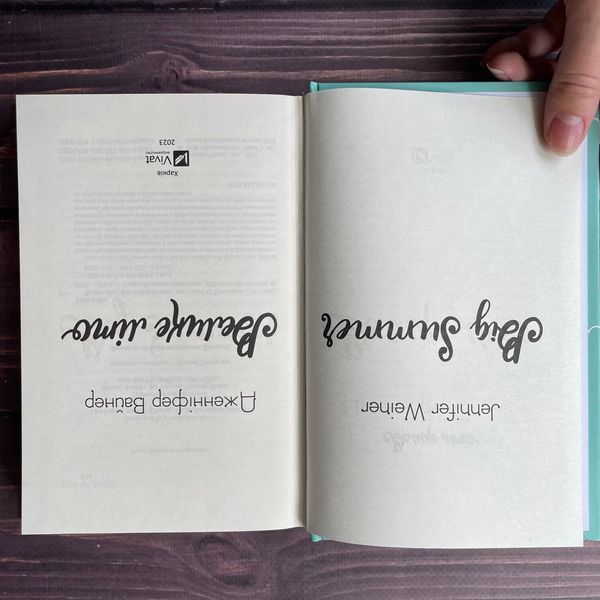 Jennifer Weiner
Big Summer
Дженніфер Вайнер
Велике літо
Харків
Vivat
видавництво
2023